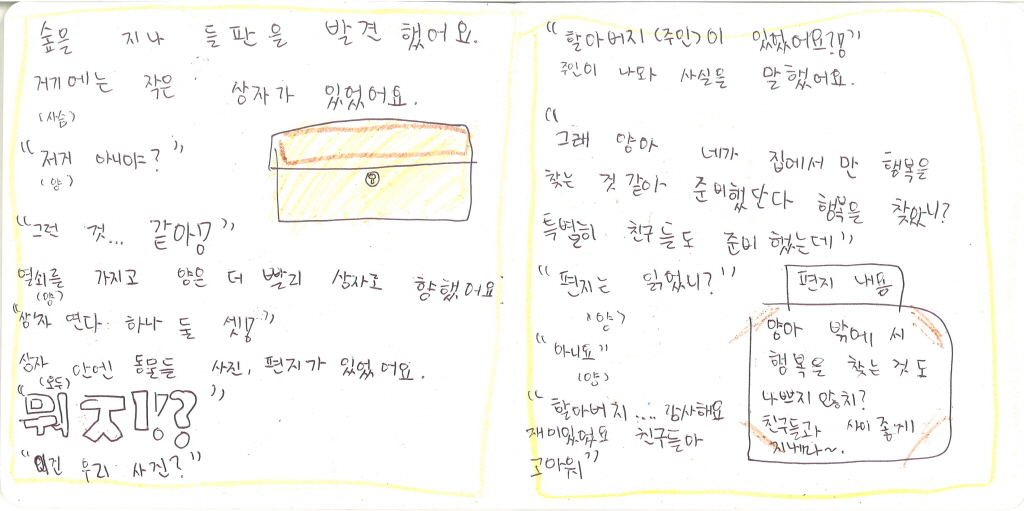 숲을 지나 들판을 발견했어요.
저기에는 작은 상자가 있었어요.
(사슴)
"저게 아니야?"
(양)
"그런 것... 같아!"
열쇠를 가지고 양은 더 빨리 상자로 향했어요.
(양)
"상자 연다. 하나 둘 셋!"
상자 안엔 동물들 사진, 편지가 있었어요.
(모두)
"뭐지!?"
"이건 우리 사진?"
"할아버지(주인)이 있었어요?!"
주인이 나와 사실을 말했어요.
"
그래 양아 네가 집에서만 행복을
찾는 것 같아 준비했단다 행복을 찾았니?
특별히 친구들도 준비했는데"
"편지는 읽었니?"
(양)
"아니요"
(양)
"할아버지.... 감사해요
재미있었요 친구들아
고마워"
편지 내용
양아 밖에서
행복을 찾는 것도
나쁘지 않치?
친구들과 사이 좋게
지내라~.